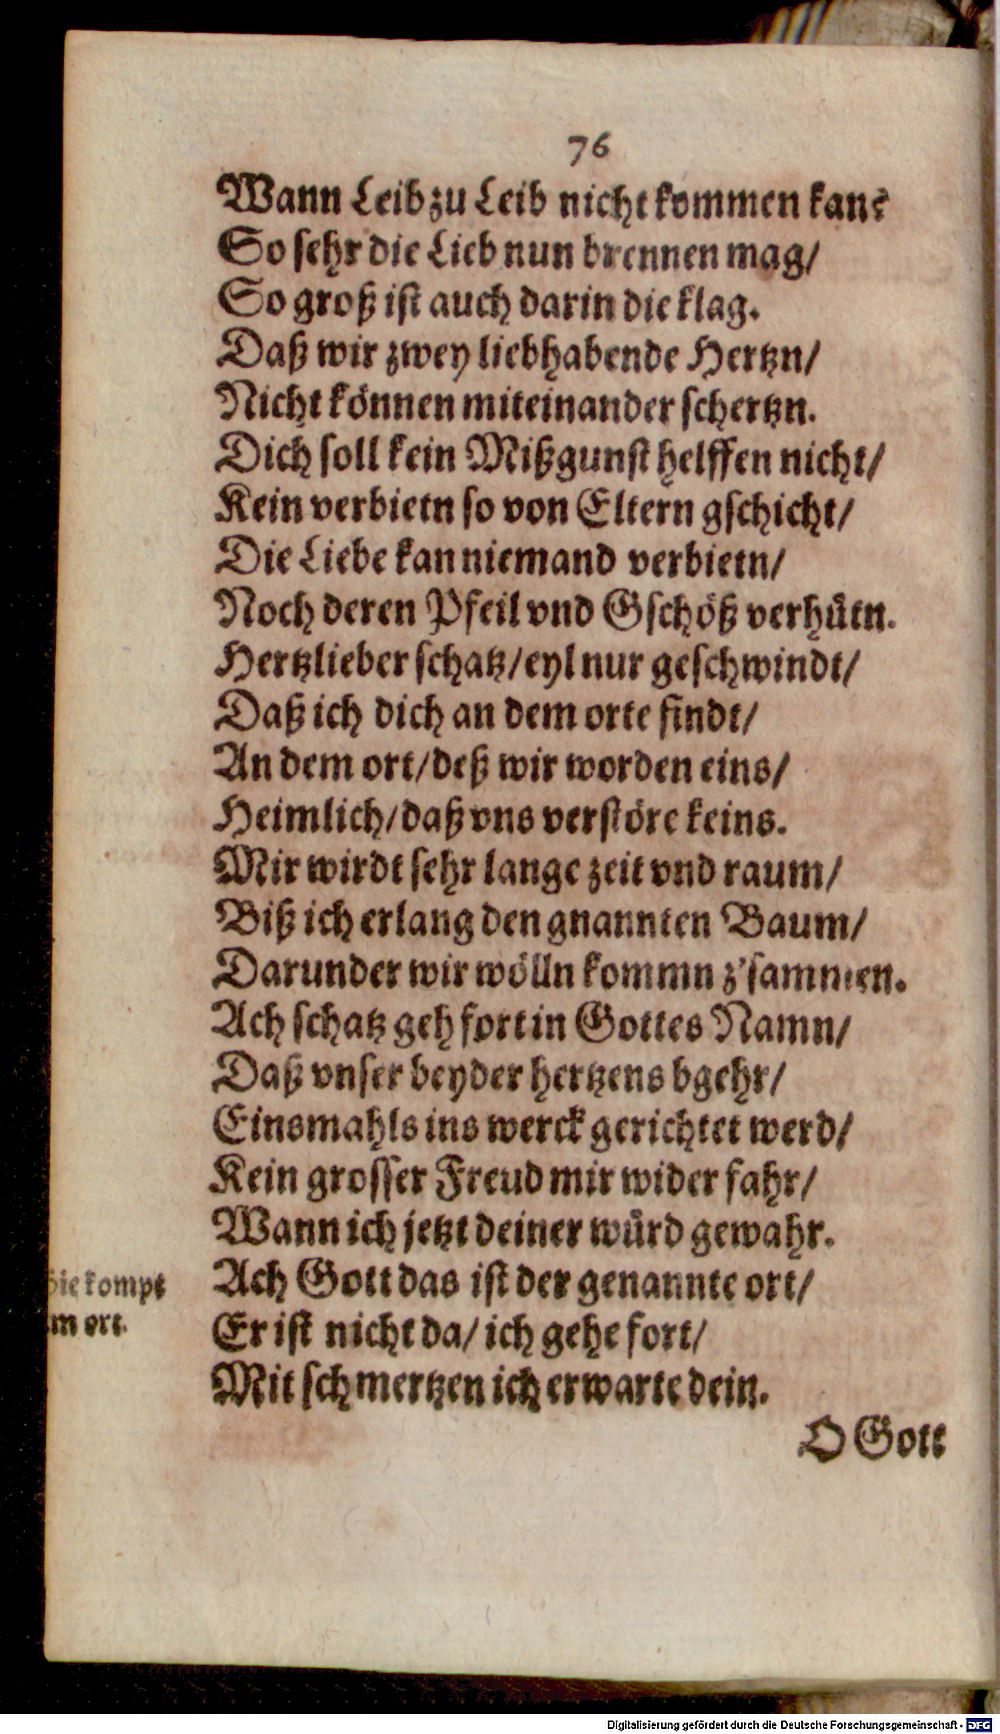 76
Wann Leib zu Leib nicht kommen kan?
So sehr die Lieb nun brennen mag/
So groß ist auch darin die klag.
Daß wir zwey liebhabende Hertzn/
Nicht können miteinander schertzn.
Dich soll kein Mißgunst helffen nicht/
Kein verbietn so von Eltern gschicht/
Die Liebe kan niemand verbietn/
Noch deren Pfeil vnd Gschöß verhütn.
Hertzlieber schatz/ eyl nur geschwindt/
Daß ich dich an dem orte findt/
An dem ort/ deß wir worden eins/
Heimlich/ daß vns verstöre keins.
Mir wirdt sehr lange zeit vnd raum/
Biß ich erlang den gnannten Baum/
Darunder wir wölln kommn z'sammen.
Ach schatz geh fort in Gottes Namn/
Daß vnser beyder hertzens bgehr/
Einsmahls ins werck gerichtet werd/
Kein grosser Freud mir wider fahr/
Wann ich jetzt deiner würd gewahr.
Sie kompt
Ach Gott das ist der genannte ort/
m ort.
Er ist nicht da/ ich gehe fort/
Mit schmertzen ich erwarte dein.
O Gott
Digitalisierung gefördert durch die Deutsche Forschungsgemeinschaft - DFG